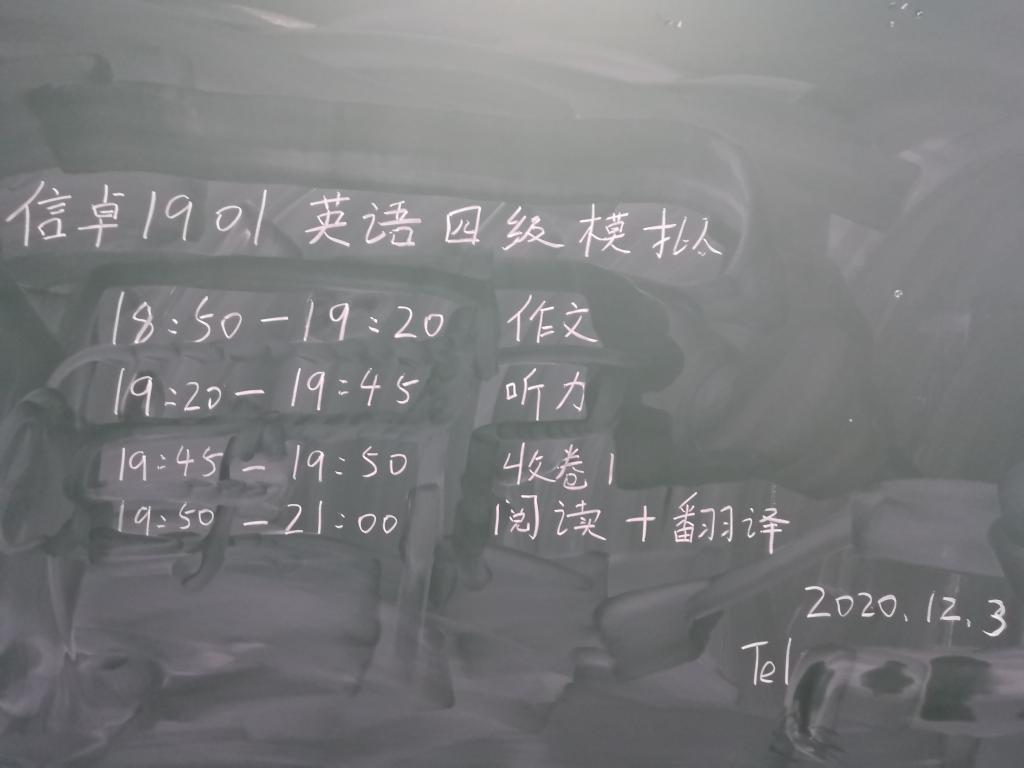 信卓1901 英语四级模拟
18:50-19:20 作文
19:20-19:45 听力
19:45-19:50 收卷1
19:50-21:00 阅读+翻译
2020.12.3
Tel